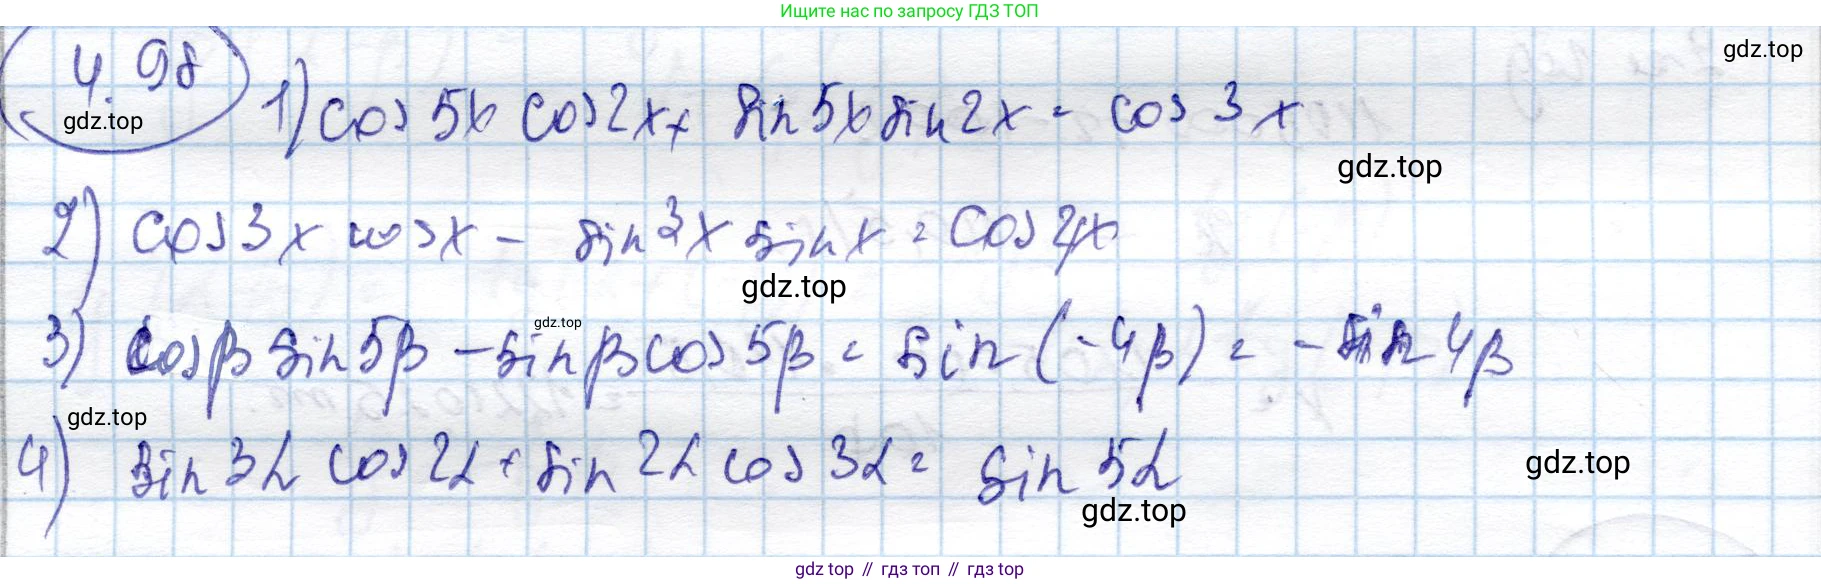 Ищите нас по запросу ГДЗ ТОП
4.98
gdz.top
gdz.top
1) cos 5x cos 2x + sin 5x sin 2x = cos 3x
gdz.top
2) cos 3x cos x - sin 3x sin x = cos 4x
gdz.top
3) cosβ sin 5β - sinβ cos 5β = sin (-4β) = - sin 4β
gdz.top
gdz.top
4) sin 3α cos 2α + sin 2α cos 3α = sin 5α
gdz.top
gdz.top
gdz top // гдз топ // гдз top